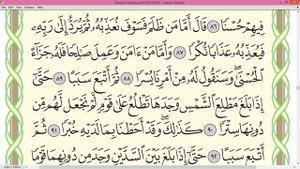 فِيهِمْ حُسْنًا ٨٦ قَالَ أَمَّا مَن ظَلَمَ فَسَوْفَ نُعَذِّبُهُ ثُمَّ يُرَدُّ إِلَىٰ رَبِّهِ
فَيُعَذِّبُهُ عَذَابًا نُّكْرًا ٨٧ وَأَمَّا مَنْ ءَامَنَ وَعَمِلَ صَٰلِحًا فَلَهُ جَزَآءً
ٱلْحُسْنَىٰ وَسَنَقُولُ لَهُ مِنْ أَمْرِنَا يُسْرًا ٨٨ ثُمَّ أَتْبَعَ سَبَبًا ٨٩ حَتَّىٰٓ
إِذَا بَلَغَ مَطْلِعَ ٱلشَّمْسِ وَجَدَهَا تَطْلُعُ عَلَىٰ قَوْمٍ لَّمْ نَجْعَل لَّهُم
مِّن دُونِهَا سِتْرًا ٩٠ كَذَٰلِكَ وَقَدْ أَحَطْنَا بِمَا لَدَيْهِ خُبْرًا ٩١ ثُمَّ
أَتْبَعَ سَبَبًا ٩٢ حَتَّىٰٓ إِذَا بَلَغَ بَيْنَ ٱلسَّدَّيْنِ وَجَدَ مِن دُونِهِمَا قَوْمًا